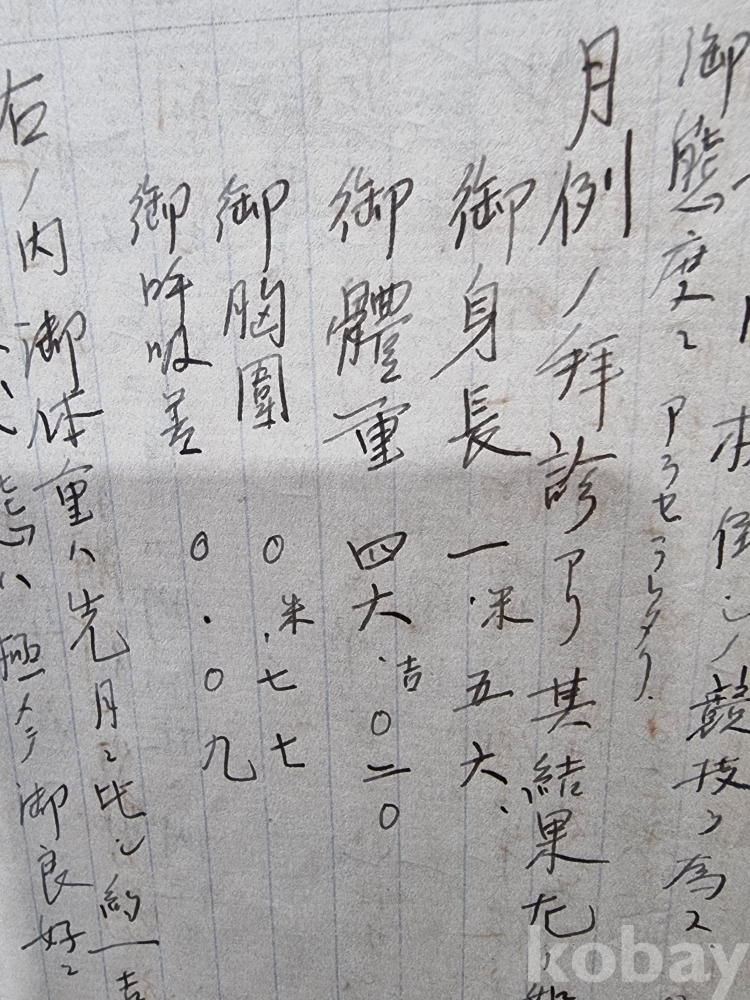 本伍シノ競技ヲ為ス
御態度ニアラセラレタリ.
月例ノ拝診アリ其結果
御身長 一.米五六、
御體重 四六.吉〇二〇
御胸圍 〇米.七七
御呼吸差 〇.〇九
右ノ内御体重ハ先月ニ比シ約一吉
極メテ御良好ニ
kobay